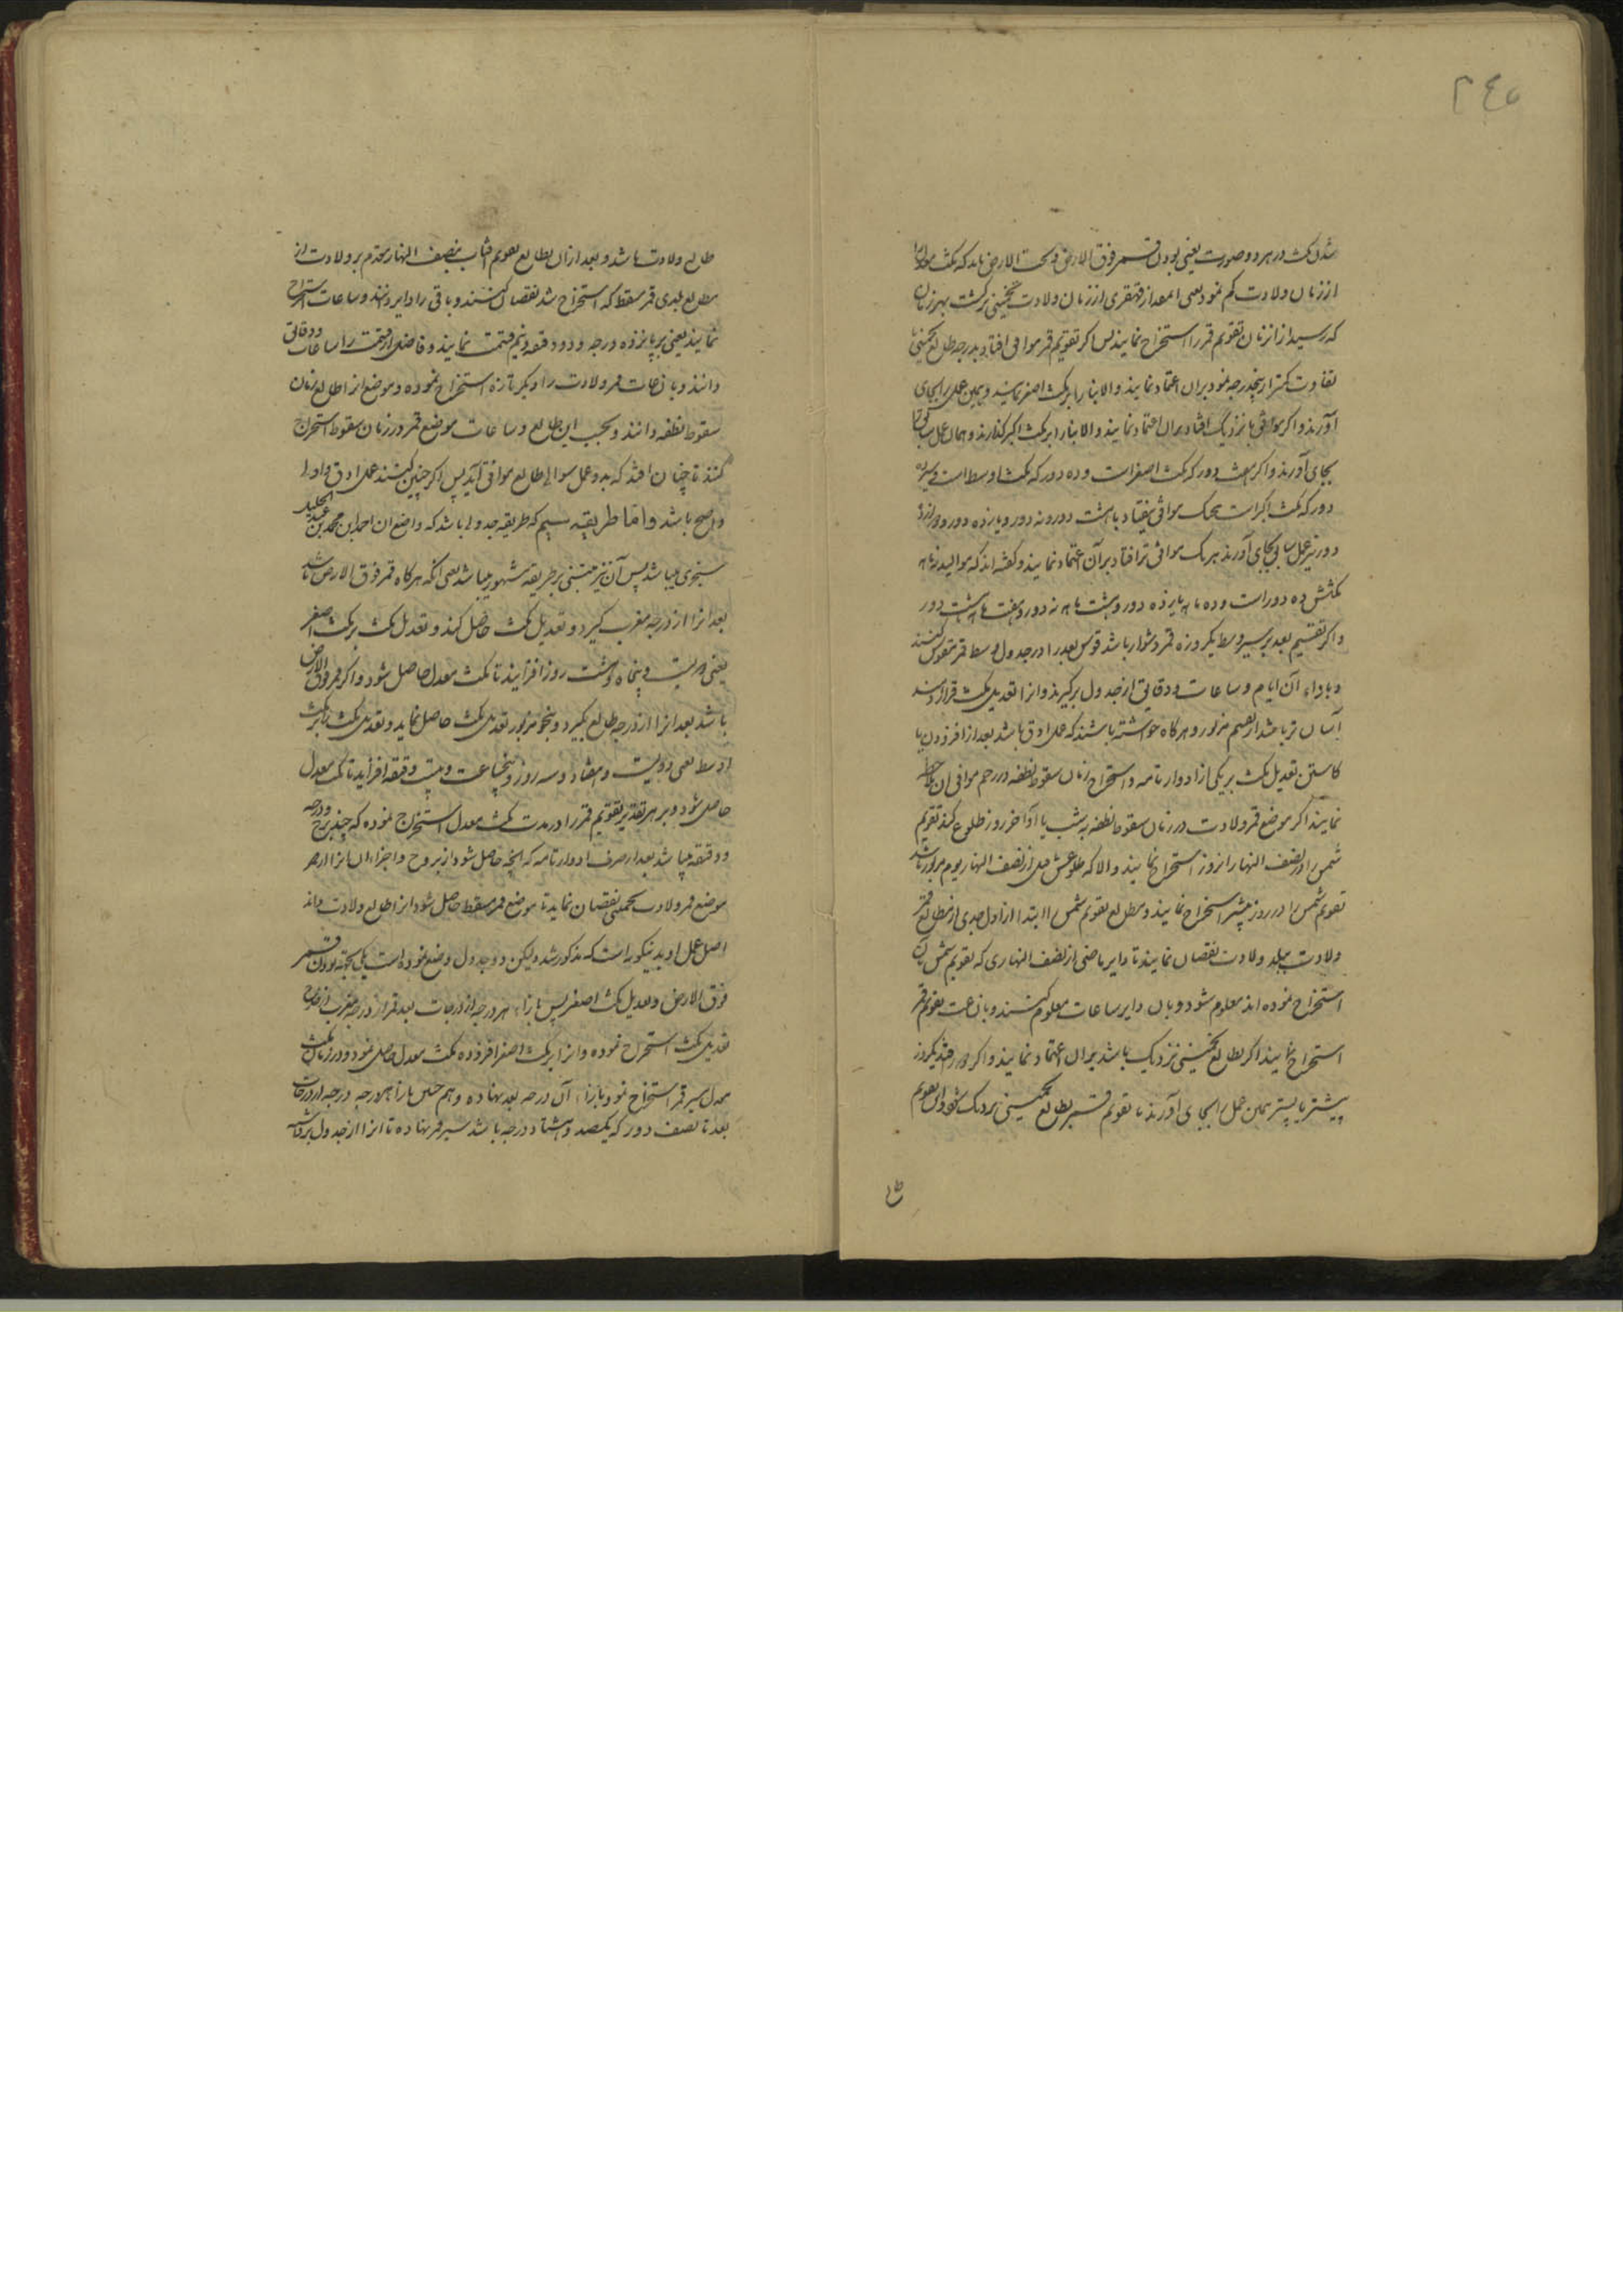 ۲۴۵
شدن مکث در هر دو صورت یعنی بودن قمر فوق الارض و تحت الارض باید که مکث
از زمان ولادت کم نمود یعنی قهقری از زمان ولادت تخمینی برگشت بهر زمان
که رسید از آنزمان تقویم قمر را استخراج نمایند پس اگر تقویم قمر موافق افتاد بدرجه طالع تخمینی یا
تفاوت کمتر از پنجدرجه بود بران اعتماد نمایند و الا بنا را بر مکث اصغر نمایند و همین عمل را بجای
آورند و اگر موافق یا نزدیک افتاد بران اعتماد نمایند و الا بنا را بر مکث اکبر گذارند و همان عمل سابق را
بجای آورند و اگر دور که مکث اصغر است و ده دور که مکث اوسط است و یازده
دور که مکث اکبر است هیچیک موافق نیفتاد با هشت دور و نه دور و یازده دور و دوازده
دور نیز عمل سابق بجای آورند هر یک موافق تر افتاد بر آن اعتماد نمایند و گفته اند که موالید
مکثش ده دور است و ده ماهه یازده دور و هشت ماهه نه دور و هفت ماهه هشت دور
و اگر تقسیم بعد بر سیر وسط یکروزه قمر دشوار باشد قوس بعد را در جدول وسط قمر مقوس کنند
و بازاء آن ایام و ساعات و دقایق از جدول برگیرند و آنرا تعدیل مکث قرار دهند
آسان تر باشد از تقسیم مزبور و هرگاه خواسته باشند که عمل ادق باشد بعد از افزودن یا
کاستن تعدیل مکث بر یکی از ادوار تامه و استخراج زمان سقوط نطفه در رحم موافق آن ملاحظه
نمایند اگر موضع قمر ولادت در زمان سقوط نطفه به شب یا آخر روز طلوع کند تقویم
شمس را در نصف النهار آنروز استخراج نمایند و الا که طلوعش قبل از نصف النهار یوم مزبور باشد
تقویم شمس را در روز پیشتر استخراج نمایند و مطالع تقویم شمس را ابتدا از اول جدی از مطالع قمر
ولادت ببلد ولادت نقصان نمایند تا دایر ماضی از نصف النهاری که تقویم شمس بآن
استخراج نموده اند معلوم شود و بآن دایر ساعات معلوم کنند و بآن ساعت تقویم قمر
استخراج نمایند اگر بطالع تخمینی نزدیک باشد بران اعتماد نمایند و اگر دور افتد یکروز
پیشتر یا پستر همین عمل را بجای آورند تا تقویم قمر بطالع تخمینی نزدیک شود و آن تقویم
طالع ولادت باشد و بعد ازان بطالع تقویم آفتاب بنصف النهار مقدم بر ولادت از
مطالع بلدی قمر مسقط که استخراج شد نقصان کنند و باقی را دایر دانند و ساعات استخراج
نمایند یعنی بر پانزده درجه و دو دقیقه و نیم قسمت نمایند و فاضل از قسمت را ساعات و دقایق
دانند و بآن ساعات قمر ولادت را دیگر تازه استخراج نموده و موضع آنرا طالع زمان
سقوط نطفه دانند و بحسب این طالع و ساعات موضع قمر در زمان سقوط استخراج
کنند تا چنان افتد که بدو عمل متوالی طالع موافق آید پس اگر چنین کنند عمل ادق و اولی
و اصح باشد و اما طریقه سیم که طریقه جدولی باشد که واضع آن احمد بن محمد بن عبدالجلیل
سنجری میباشد پس آن نیز مبتنی بر طریقه مشهور میباشد یعنی آنکه هرگاه قمر فوق الارض باشد
بعد آنرا از درجه مغرب گیرد و تعدیل مکث حاصل کند و تعدیل مکث بر مکث اصغر
یعنی دویست و پنجاه و هشت روز افزایند تا مکث معدل حاصل شود و اگر قمر فوق الارض
باشد بعد آنرا از درجه طالع گیرد و بنحو مزبور تعدیل مکث حاصل نماید و تعدیل مکث را بر مکث
اوسط یعنی دویست و هفتاد و سه روز و پنجساعت و بیست دقیقه افزاید تا مکث معدل
حاصل شود و بر هر تقدیر تقویم قمر را در مدت مکث معدل استخراج نموده که چند برج و درجه
و دقیقه میباشد بعد از صرف ادوار تامه که آنچه حاصل شود از بروج و اجزاء آن آنرا از
موضع قمر ولادت تخمینی نقصان نماید تا موضع قمر مسقط حاصل شود آنرا طالع ولادت داند
اصل عمل او بدینگونه است که مذکور شد و لیکن دو جدول وضع نموده است یکی بجهة بودن قمر
فوق الارض و تعدیل مکث اصغر پس بازاء هر درجه از درجات بعد قمر از درجه مغرب
تعدیل مکث استخراج نموده و آنرا بر مکث اصغر افزوده مکث معدل حاصل نمود و در زمان مکث
معدل سیر قمر استخراج نمود بازاء آن درجه بعد نهاده و هم چنین بازاء هر درجه درجه از درجات
بعد تا نصف دور که یکصد و هشتاد درجه باشد سیر قمر نهاده تا آنرا از جدول برداشته